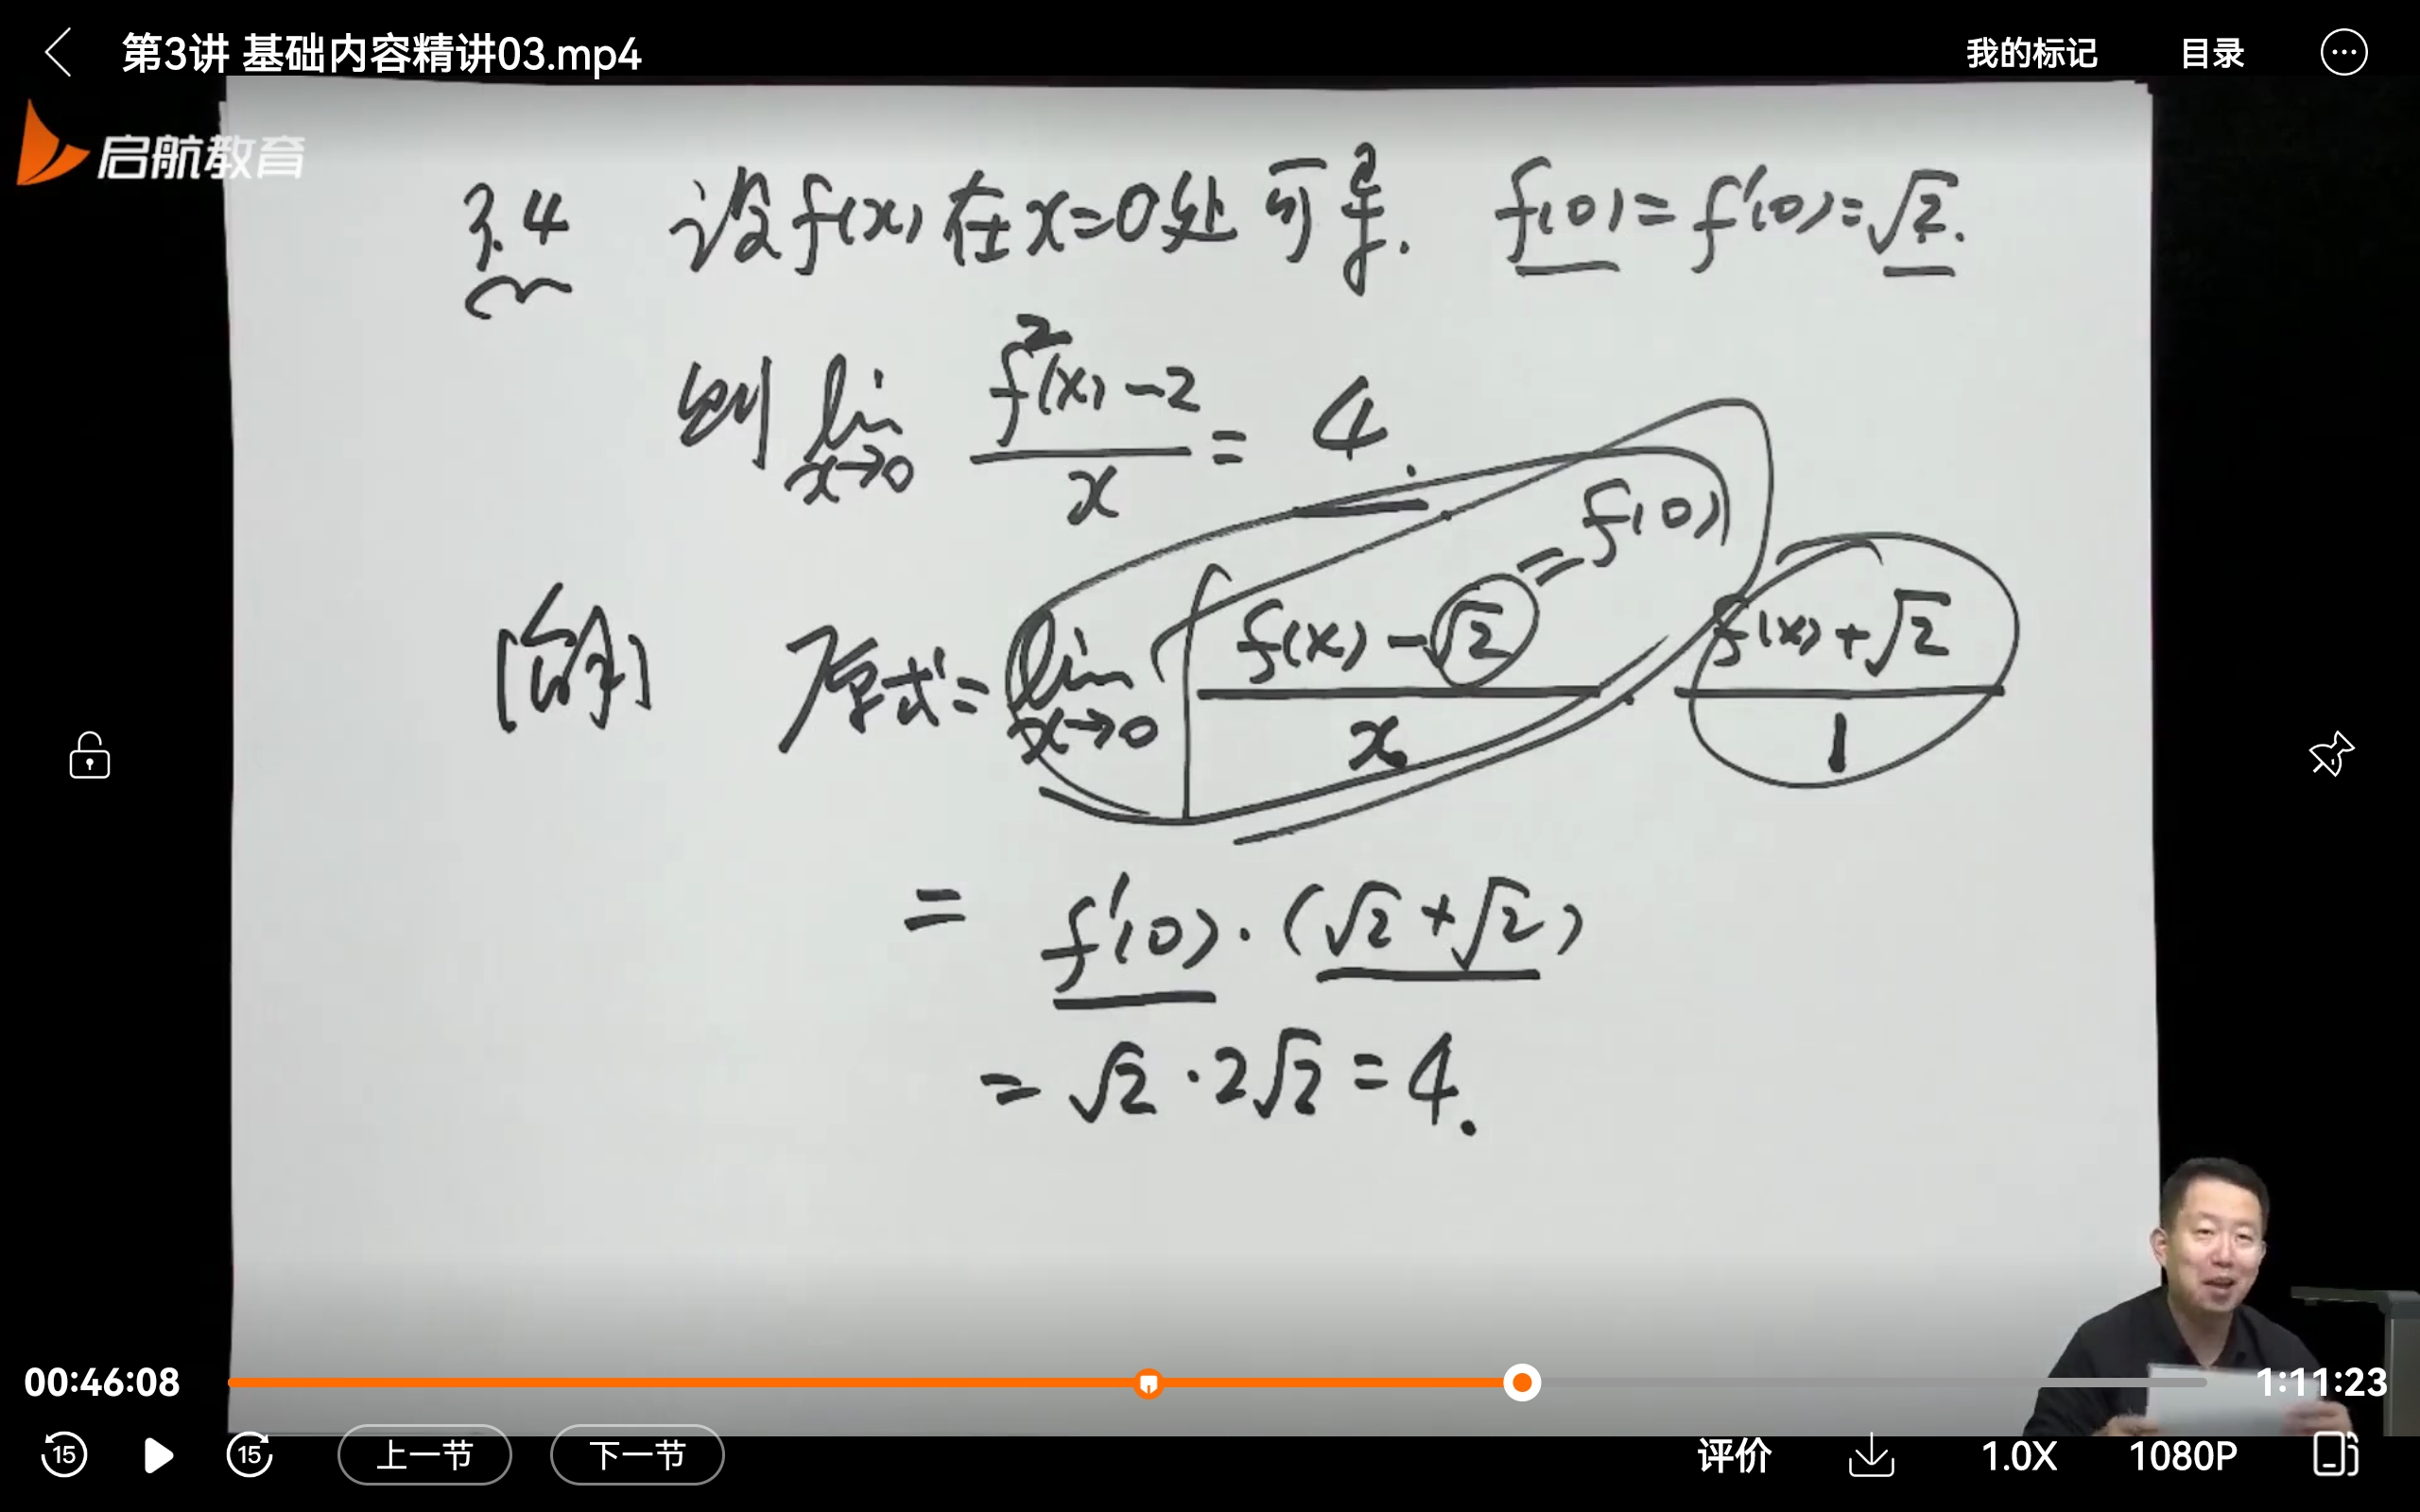 第3讲 基础内容精讲03.mp4
我的标记
目录
启航教育
3.4 设f(x)在x=0处可导. f(0)=f'(0)=√2.
则 lim x→0 (f²(x)-2)/x = 4.
=f(0)
[解] 原式= lim x→0 (f(x)-√2)/x · (f(x)+√2)/1
= f'(0)·(√2+√2)
= √2·2√2=4.
00:46:08
1:11:23
15
15
上一节
下一节
评价
1.0X
1080P